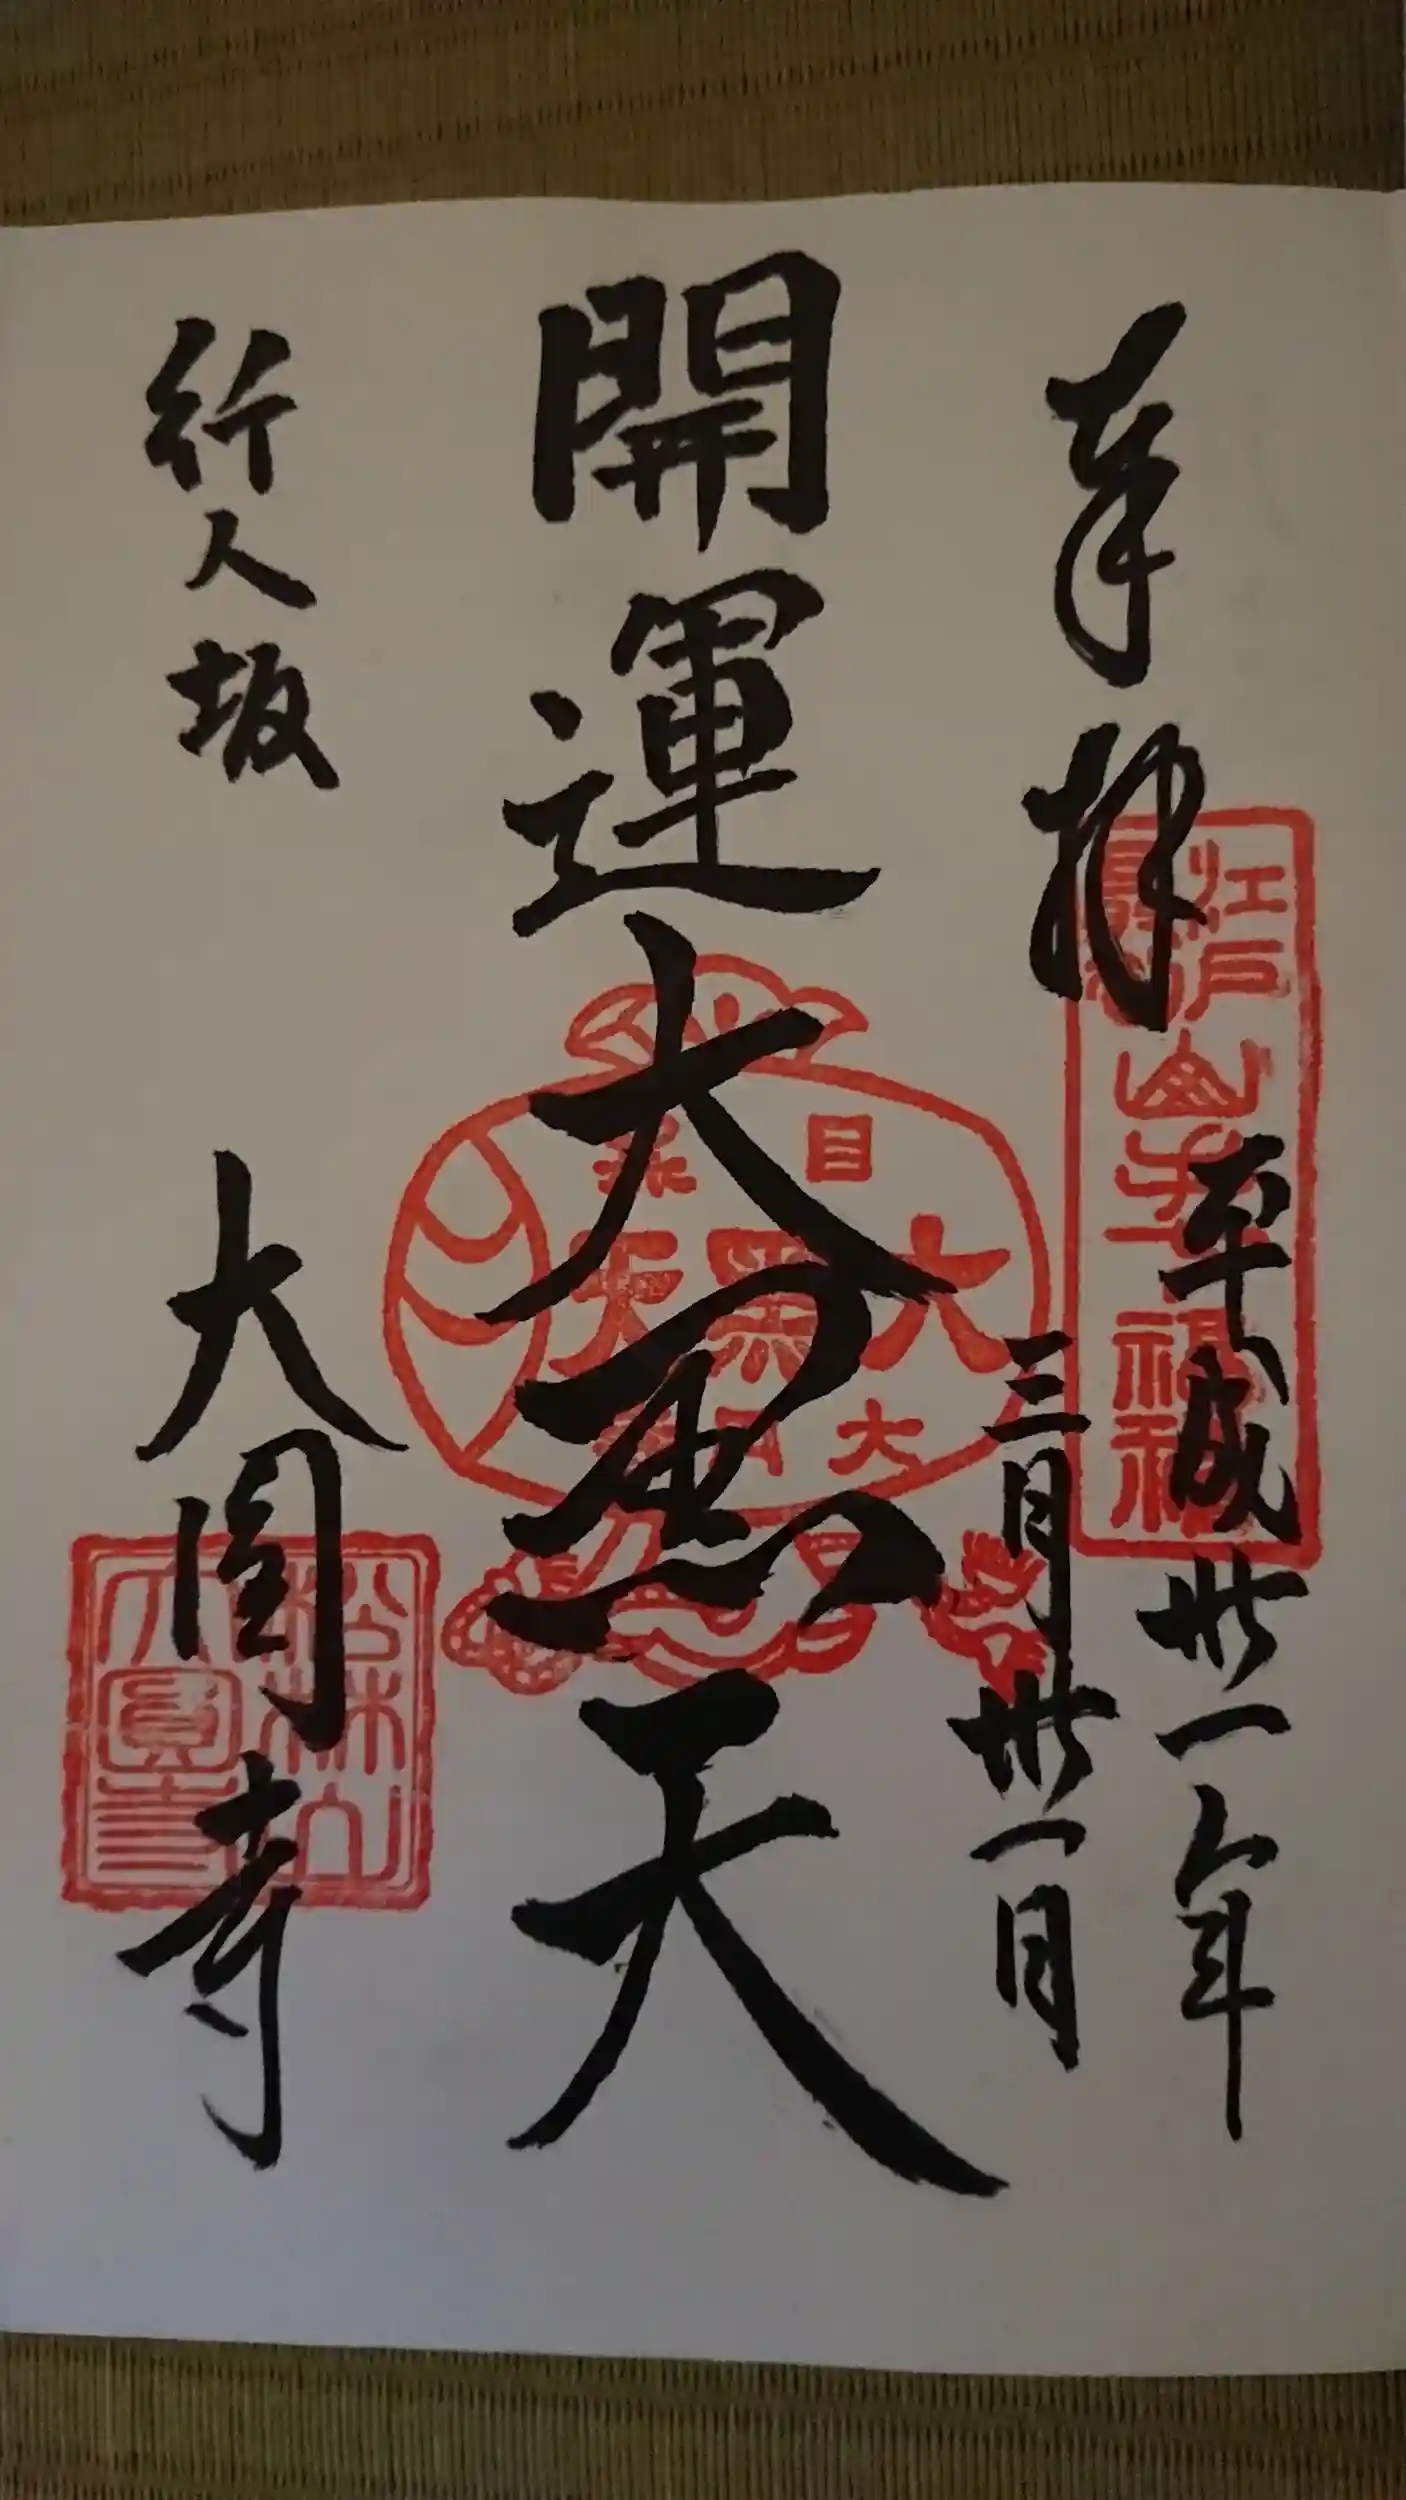 奉拝
江戸
山手七福神
平成卅一年
三月卅一日
開運大黒天
目黒
大黒天
大円寺
行人坂
大圓寺
松林山
大圓寺